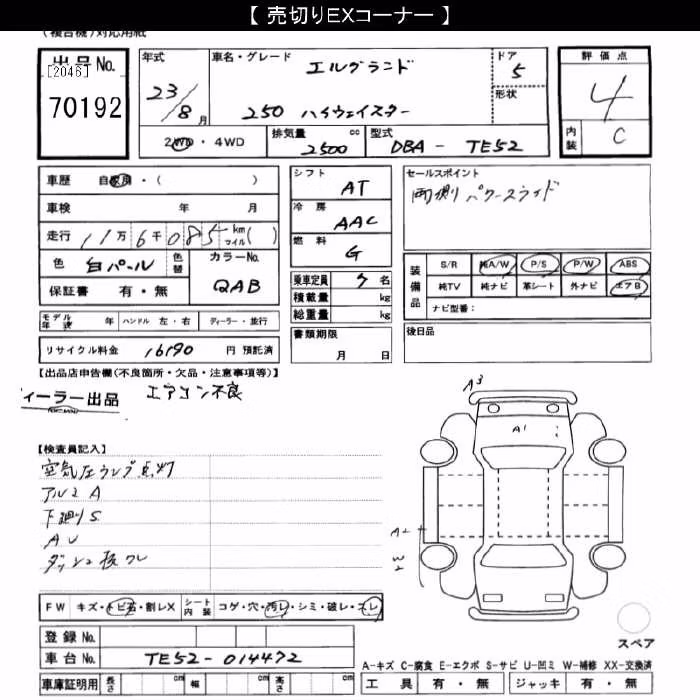 【 売切りEXコーナー 】
(複合機)対応用紙
出品No.
[2046]
70192
年式
23/8月
車名・グレード
エルグランド
250 ハイウェイスター
ドア
5
形状
評価点
4
内装
C
2WD・4WD
排気量
2500
cc
型式
DBA - TE52
車歴 自家用・( )
車検 年 月
走行 11万6千085 km マイル( )
色 白パール
色替
カラーNo.
QAB
保証書 有・無
シフト AT
冷房 AAC
燃料 G
乗車定員 7 名
積載量 kg
総重量 kg
セールスポイント
両側パワースライド
装備品
S/R 純A/W P/S P/W ABS
純TV 純ナビ 革シート 外ナビ エアB
ナビ型番:
モデル年式 年 ハンドル 左・右 ディーラー・並行
書類期限
月 日
後日品
リサイクル料金 16190 円 預託済
【出品店申告欄(不良箇所・欠品・注意事項等)】
ィーラー出品
エアコン不良
【検査員記入】
空気圧ランプ点灯
アルミ A
下廻りS
AU
ダッシュ板ワレ
A3
A1
A2
W2
FW キズ・トビ石・割レX
シート内装 コゲ・穴・汚レ・シミ・破レ・スレ
登録No.
車台No. TE52-014472
車庫証明用 長さ cm 幅 cm 高さ cm
スペア
A-キズ C-腐食 E-エクボ S-サビ U-凹ミ W-補修 XX-交換済
工具 有・無 ジャッキ 有・無